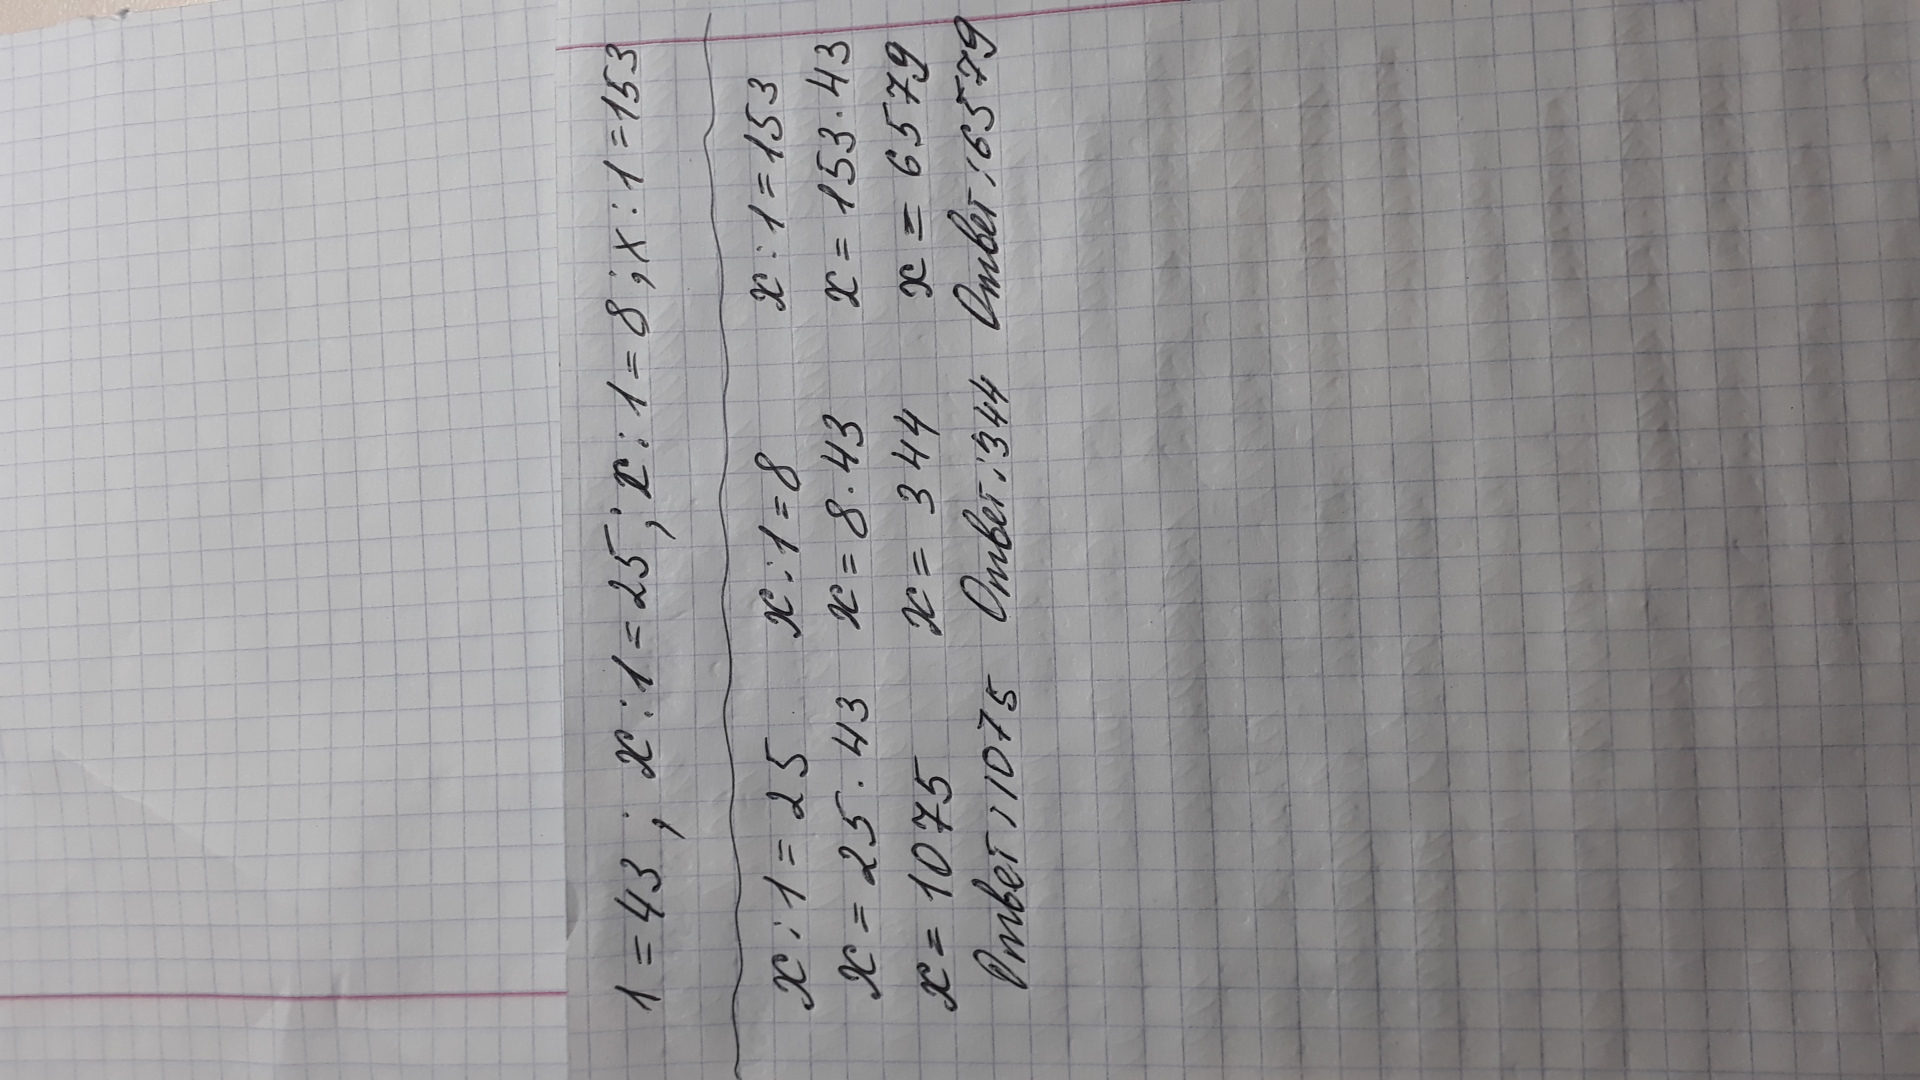 1 = 43 ; x : 1 = 25 ; x : 1 = 8 ; x : 1 = 153
x : 1 = 25 x : 1 = 8 x : 1 = 153
x = 25 · 43 x = 8 · 43 x = 153 · 43
x = 1075 x = 344 x = 6579
Ответ: 1075 Ответ: 344 Ответ: 6579